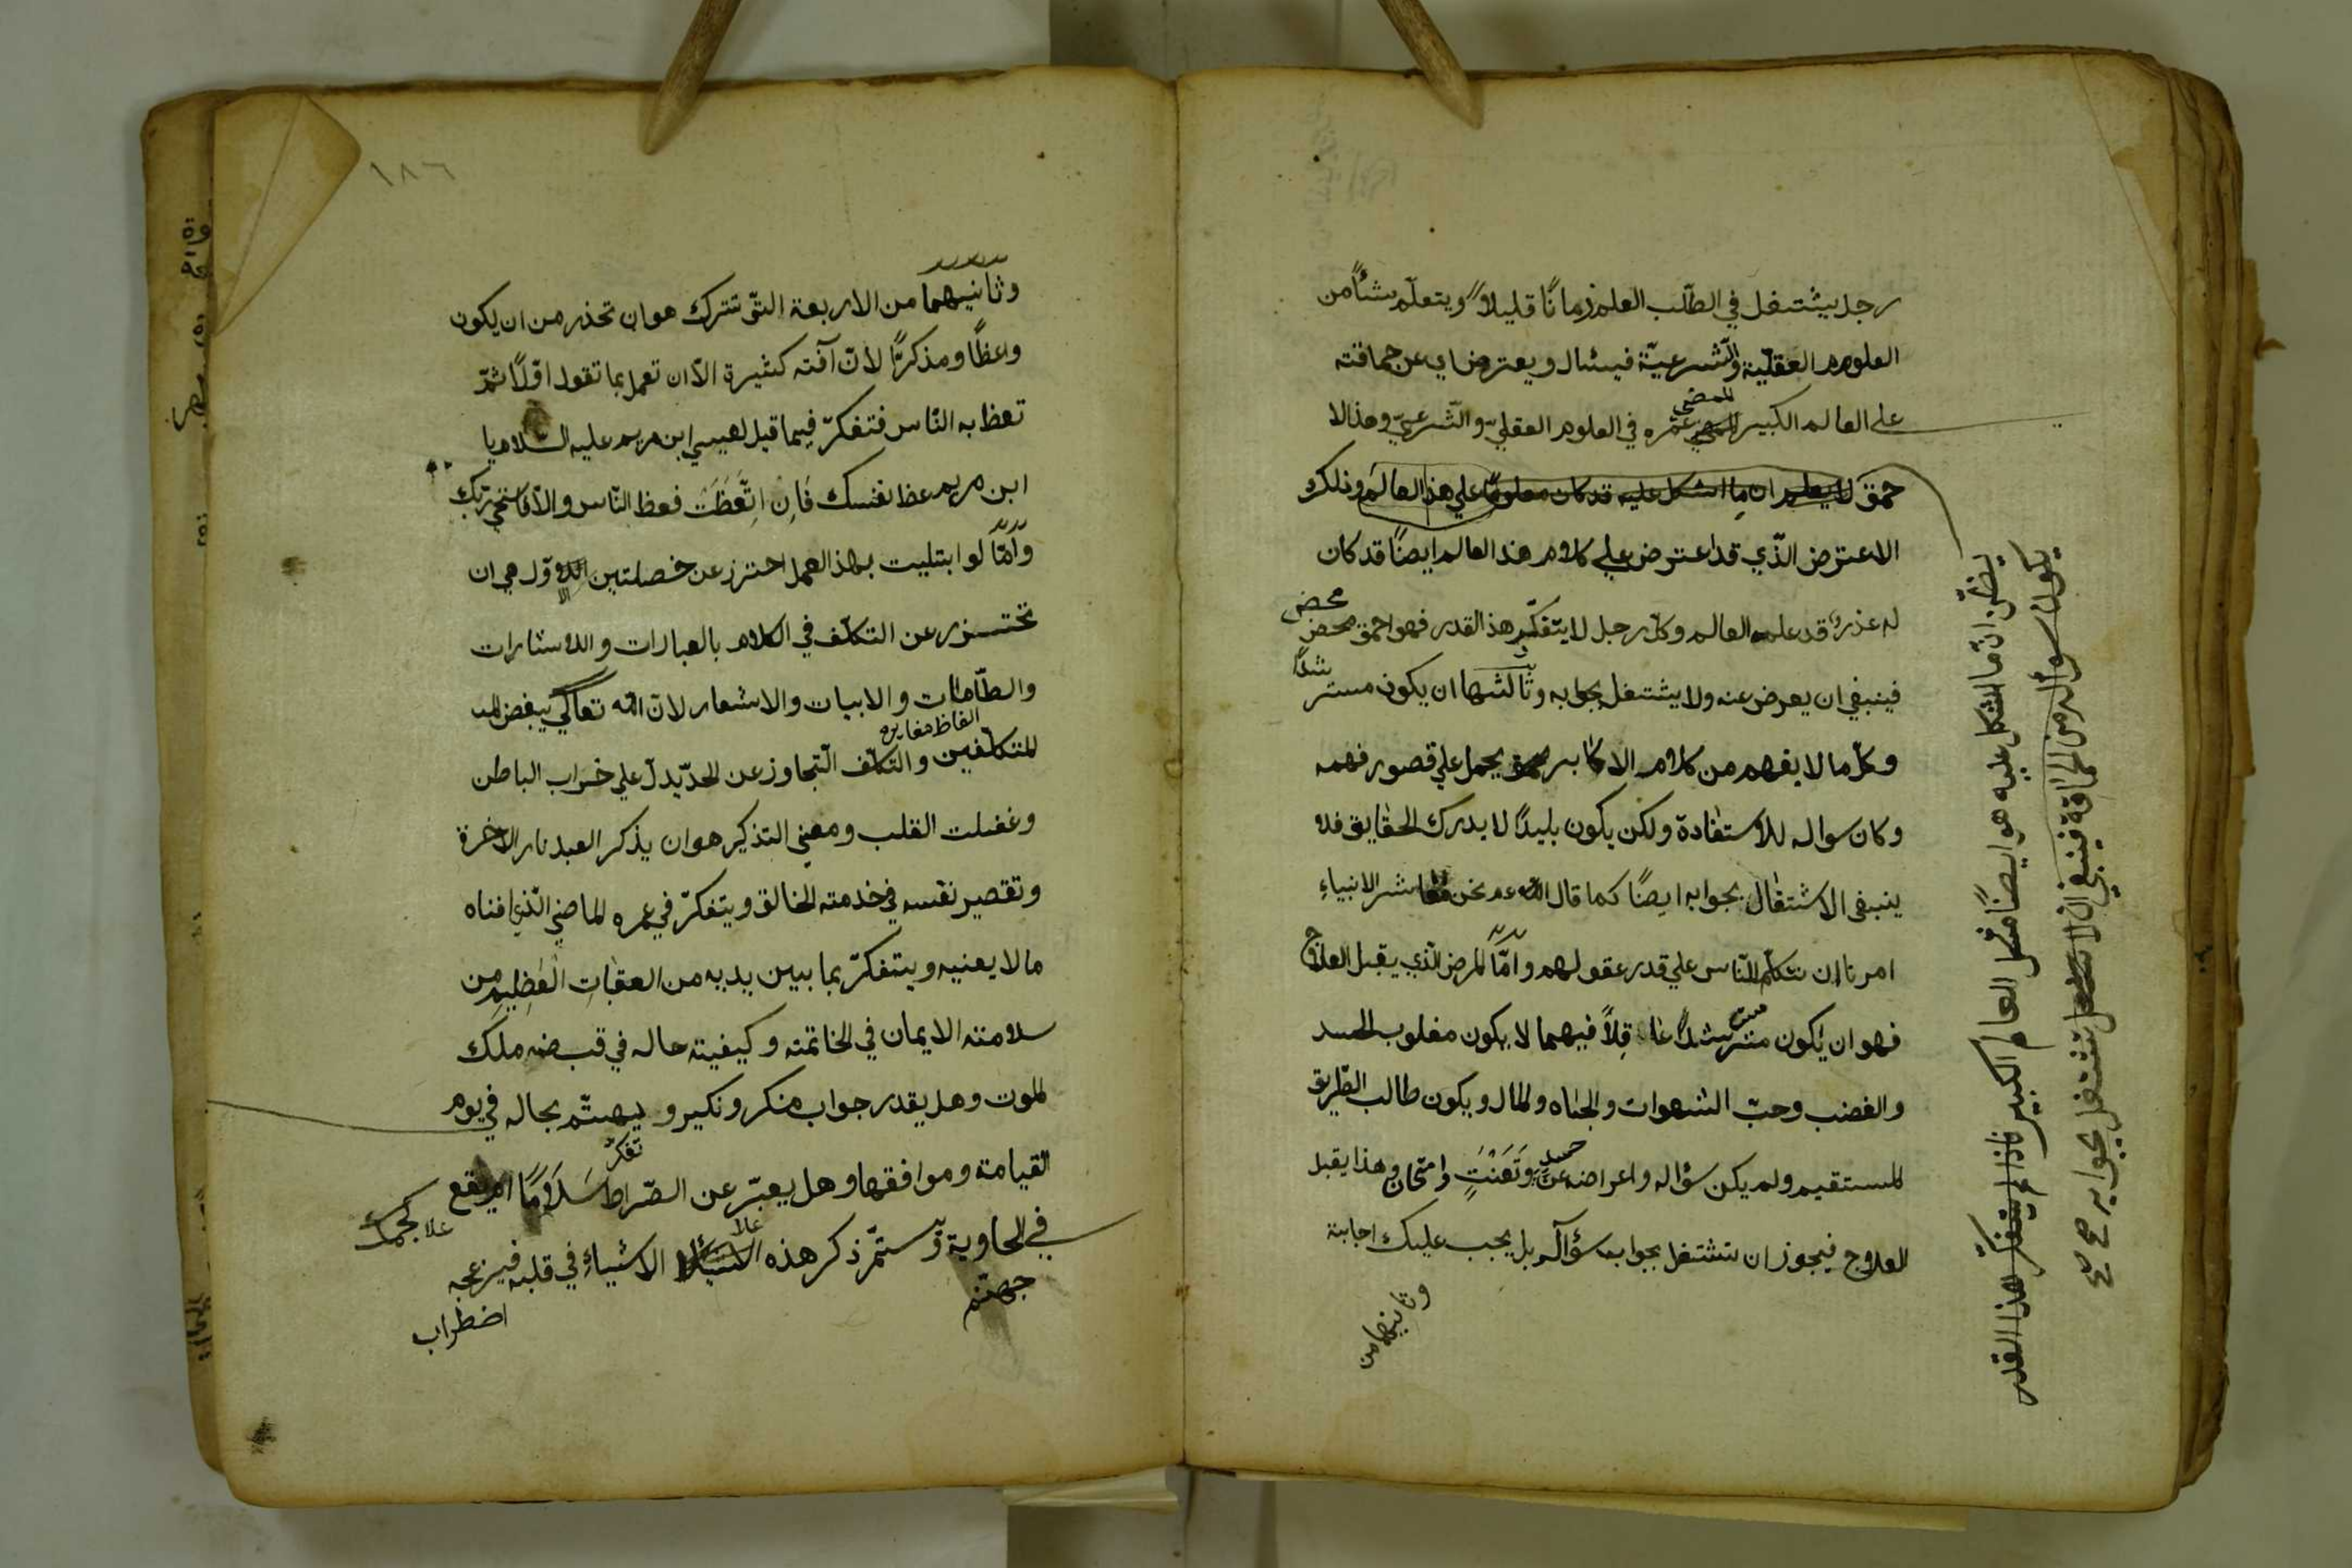 رجل يشتغل في الطّلب العلم زمانًا قليلاً ويتعلّم شئاً من
العلوم العقليّة والشّرعيّة فيسئال ويعترض اي عن حماقته
على العالم الكبير الممضى عمره في العلوم العقليّ والشّرعيّ وهذا لا
حمق لا يعلم ان ما اشكل عليه قد كان معلومًا علي هذا العالم وذلك
الاعترض الّذي قد اعترض علي كلام هذا العالم ايضًا قد كان
له عذر قد علمه العالم وكلّ رجل لا يتفكّر هذ القدر فهو احمق محض
محض
فينبغي ان يعرض عنه ولا يشتغل بجوابه وثالثها ان يكون مسترشدًا
وكلّ ما لا يفهم من كلام الاكابر يحمل علي قصور فهمه
وكان سواله للاستفادة ولكن يكون بليدًا لا يدرك الحقايق فلا
ينبغى الاشتغال بجوابه ايضًا كما قال عم نحن معاشر الانبياء
امرنا ان نتكلّم النّاس علي قدر عقولهم وامّا المرض الّذي يقبل العلاج
فهو ان يكون مسترشدًا عاقِلاً فيهما لا يكون مغلوب الحسد
والغضب وحبّ الشهوات والجاه والمال ويكون طالب الطّريق
المستقيم ولم يكن سؤاله واعراضه عن حسدٍ وتَعَنُتٍ وامتحان وهذا يقبل
العلاج فيجوز ان تشتغل بجواب سؤاله بل يجب عليك اجابته
وثانيهما من
يظنّ انّ ما اشكل عليه هو ايضًا مشكل العالم الكبير فاذا لم يتفكّر هذا القدر
يكون سؤاله من الحماقة فينبغي ان لا تشتغل بجوابه صح
١٨٦
وثانيهما من الاربعة الّتى تترك هو ان تحذر من ان يكون
واعظًا ومذكرًا لانّ آفته كثيرة الاّ ان تعمل بما تقول اوّلاً ثمّ
تعظ به النّاس فتفكرّ فيما قيل لعيسي ابن مريم عليه السّلام يا
ابن مريم عظ نفسك فَاِن اتّعَظَتَ فعظ النّاس والاّ فاستحي ربّك
وامّا لو ابتليت بهذ العمل احترز عن خصلتين الاوّل هي ان
تحتسزر عن التكلّف في الكلام بالعبارات والاشارات
والطّامات والابيات والاشعار لانّ الله تعالي يبغض
الفاظ مغايره
المتكلّفين والتكلّف التّجاوز عن الحدّ يدلّ علي خراب الباطن
وغفلت القلب ومعنى التذكير هو ان يذكر العبد نار الاخرة
وتقصير نفسه في خدمته الخالق ويتفكرّ في عمره الماضي الّذي افناه
ما لا يعنيه ويتفكرّ بما بين يديه من العقباتِ العظِيمِ من
سلامته الايمان في الخاتمته وكيفيته حاله في قبضه ملك
الموت وهل يقدر جواب منكر ونكير و يهتّم بحاله في يوم
القيامة وموافقها وهل يعبّر عن الصّراط سَلَامًا ام يقع
تفكرّ
في الحاوية وّ ستمّر ذكر هذه الاشياءِ في قلبه فيزعجه
جهنّم
اضطراب